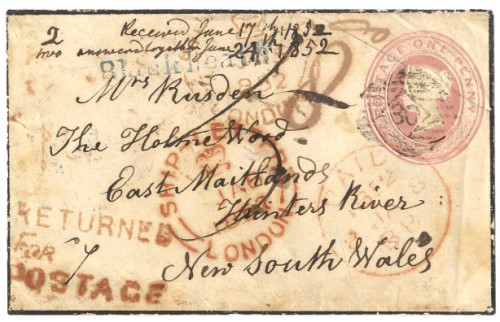 Received June 17th 1852
2
two answered together June 24th 1852
Blackheath
POSTAGE ONE PENNY
Mrs Rusden
LONDON
The Holme Wood
SHIP
PAID
East Maitland
Hunters River
RETURNED
LONDON
FOR
New South Wales
POSTAGE